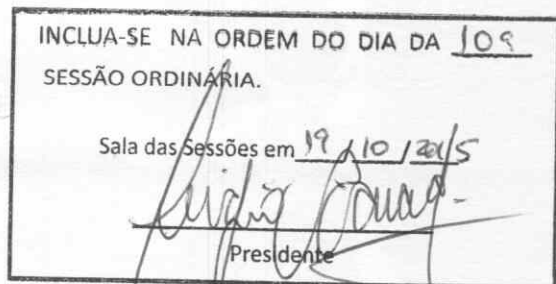 INCLUA-SE NA ORDEM DO DIA DA 109
SESSÃO ORDINÁRIA.
Sala das Sessões em 19 / 10 / 2015
Presidente